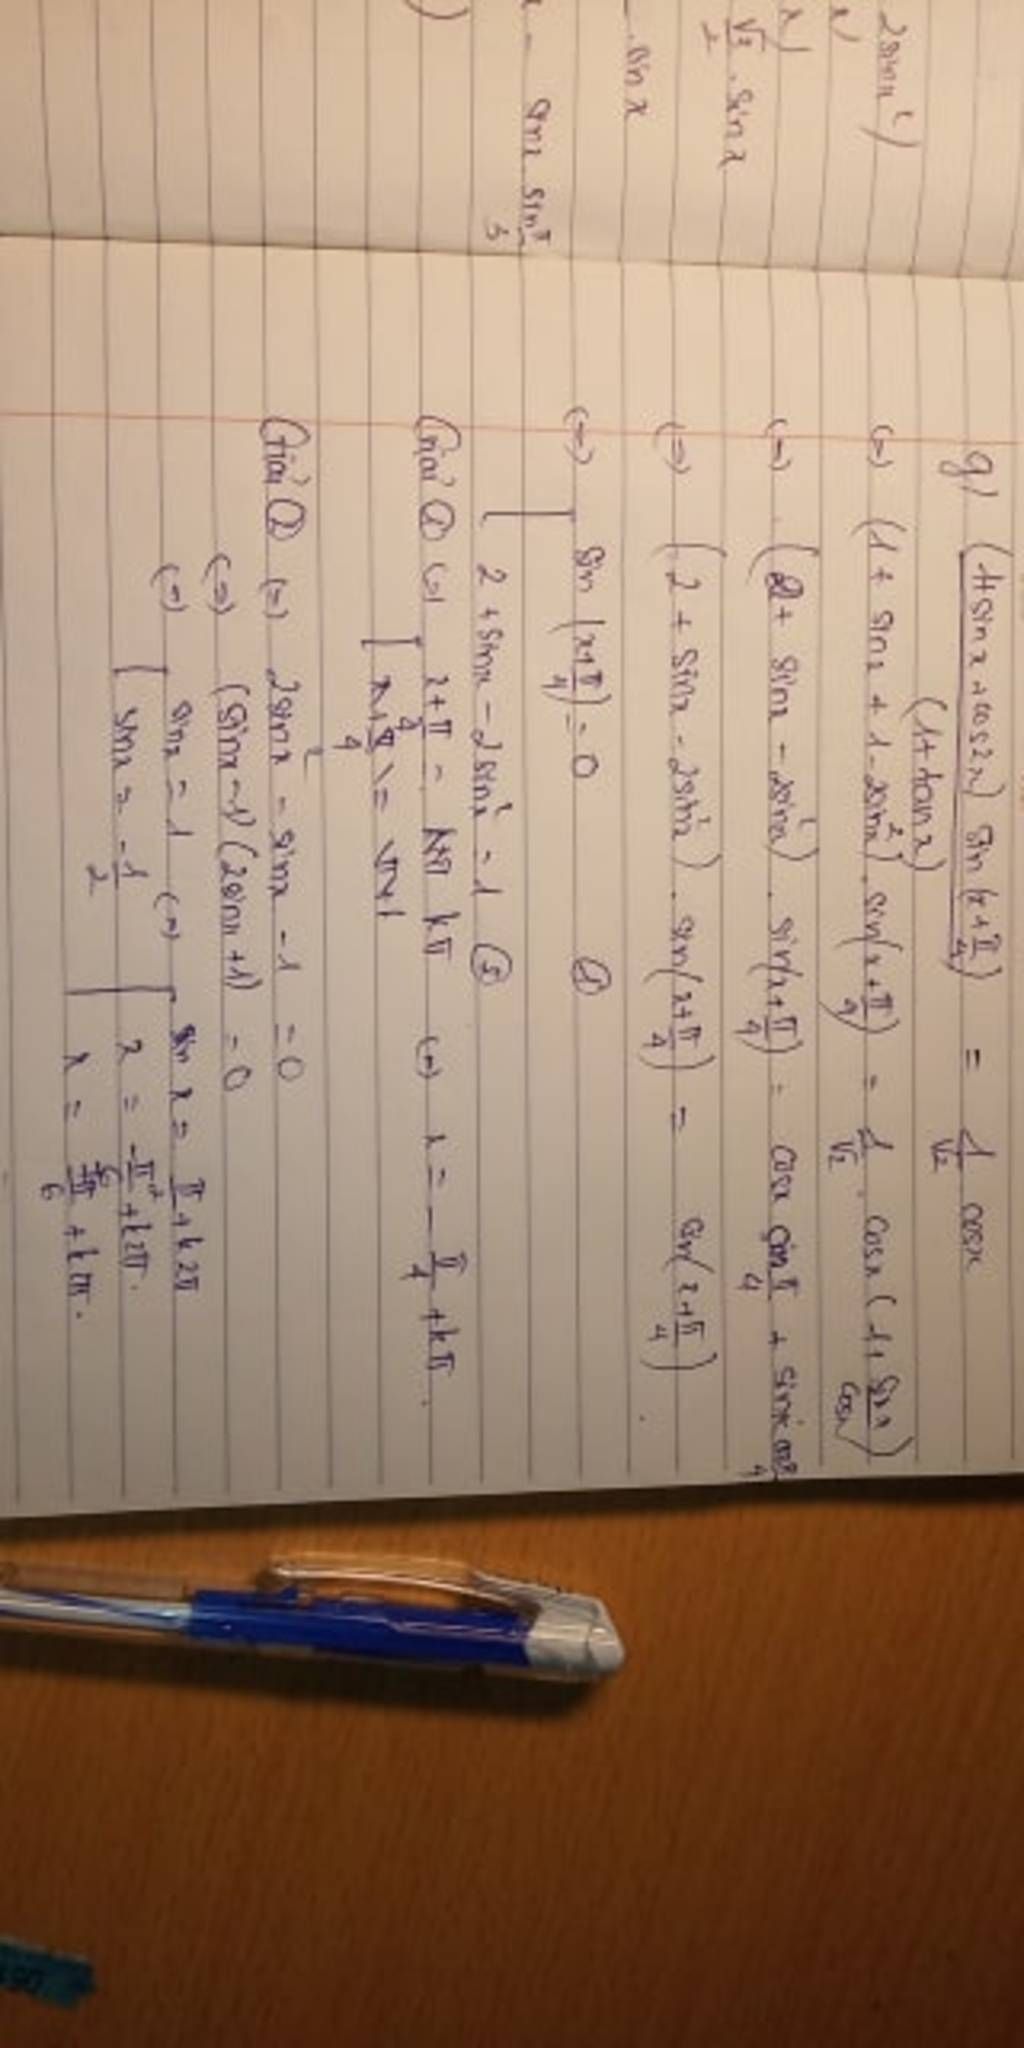 2sinx²)
x)
√3/2 . sinx
. sinx
- sinx . sin π/3
g) (1+sinx+cos2x) sin(x+π/4) = 1/√2 cosx
(1+tanx)
(=) (1+ sinx + 1 - 2sin²x) . sin(x+π/4) = 1/√2 . cosx (1+ sinx/cosx)
(=) (2+ sinx - 2sin²x) . sin(x+π/4) = cosx sin π/4 + sinx cos π/4
(=) (2 + sinx - 2sin²x) . sin(x+π/4) = sin(x+π/4) .
(=) sin(x+π/4) = 0 ①
2 + sinx - 2sin²x = 1 ②
Giải ① (=) x+π/4 = kπ (=) x = - π/4 + kπ .
x+π/4
Giải ② (=) 2sin²x - sinx - 1 = 0
(=) (sinx - 1) (2sinx + 1) = 0
(=) sinx = 1 (=) sin x = π/2 + k2π
sinx = -1/2 x = -π/6 + k2π .
x = 7π/6 + k2π .